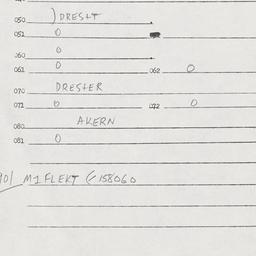 050 ) DRESLT
051 0
060 0
061 0 062 0
070 DRESTER
071 0 072 0
080 AKERN
081 0
90/ M1FLEKT (-158060